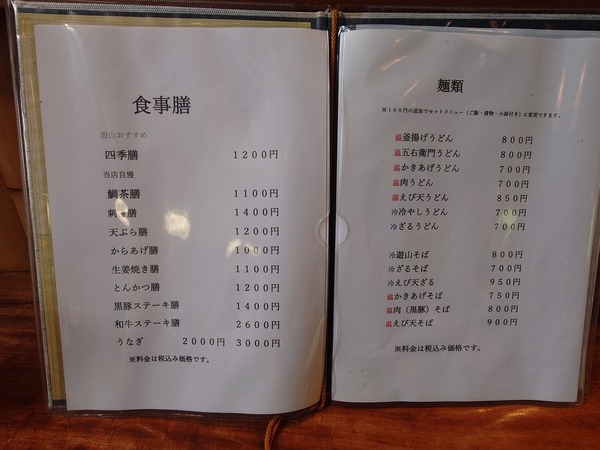 食事膳
遊山おすすめ
四季膳 1200円
当店自慢
鯛茶膳 1100円
刺身膳 1400円
天ぷら膳 1200円
からあげ膳 1000円
生姜焼き膳 1100円
とんかつ膳 1200円
黒豚ステーキ膳 1400円
和牛ステーキ膳 2600円
うなぎ 2000円 3000円
※料金は税込み価格です。
麺類
※100円の追加でセットメニュー(ご飯・漬物・小鉢付き)に変更できます。
温釜揚げうどん 800円
温五右衛門うどん 800円
温かきあげうどん 700円
温肉うどん 700円
温えび天うどん 850円
冷冷やしうどん 700円
冷ざるうどん 700円
冷遊山そば 800円
冷ざるそば 700円
冷えび天ざる 950円
温かきあげそば 750円
温肉(黒豚)そば 800円
温えび天そば 900円
※料金は税込み価格です。